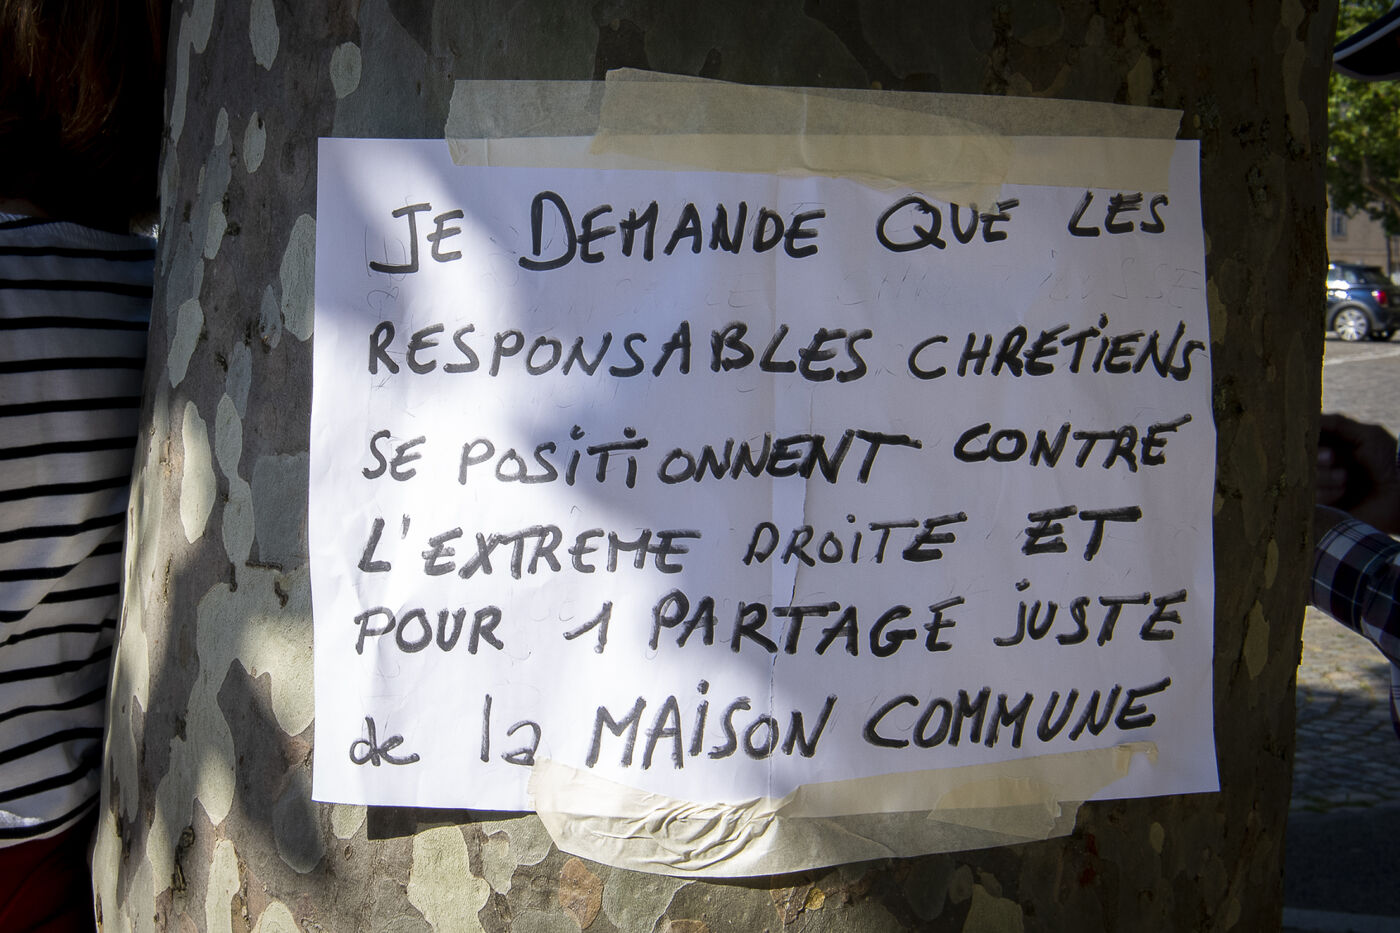 JE DEMANDE QUE LES
RESPONSABLES CHRÉTIENS
SE POSITIONNENT CONTRE
L'EXTREME DROITE ET
POUR 1 PARTAGE JUSTE
de la MAISON COMMUNE